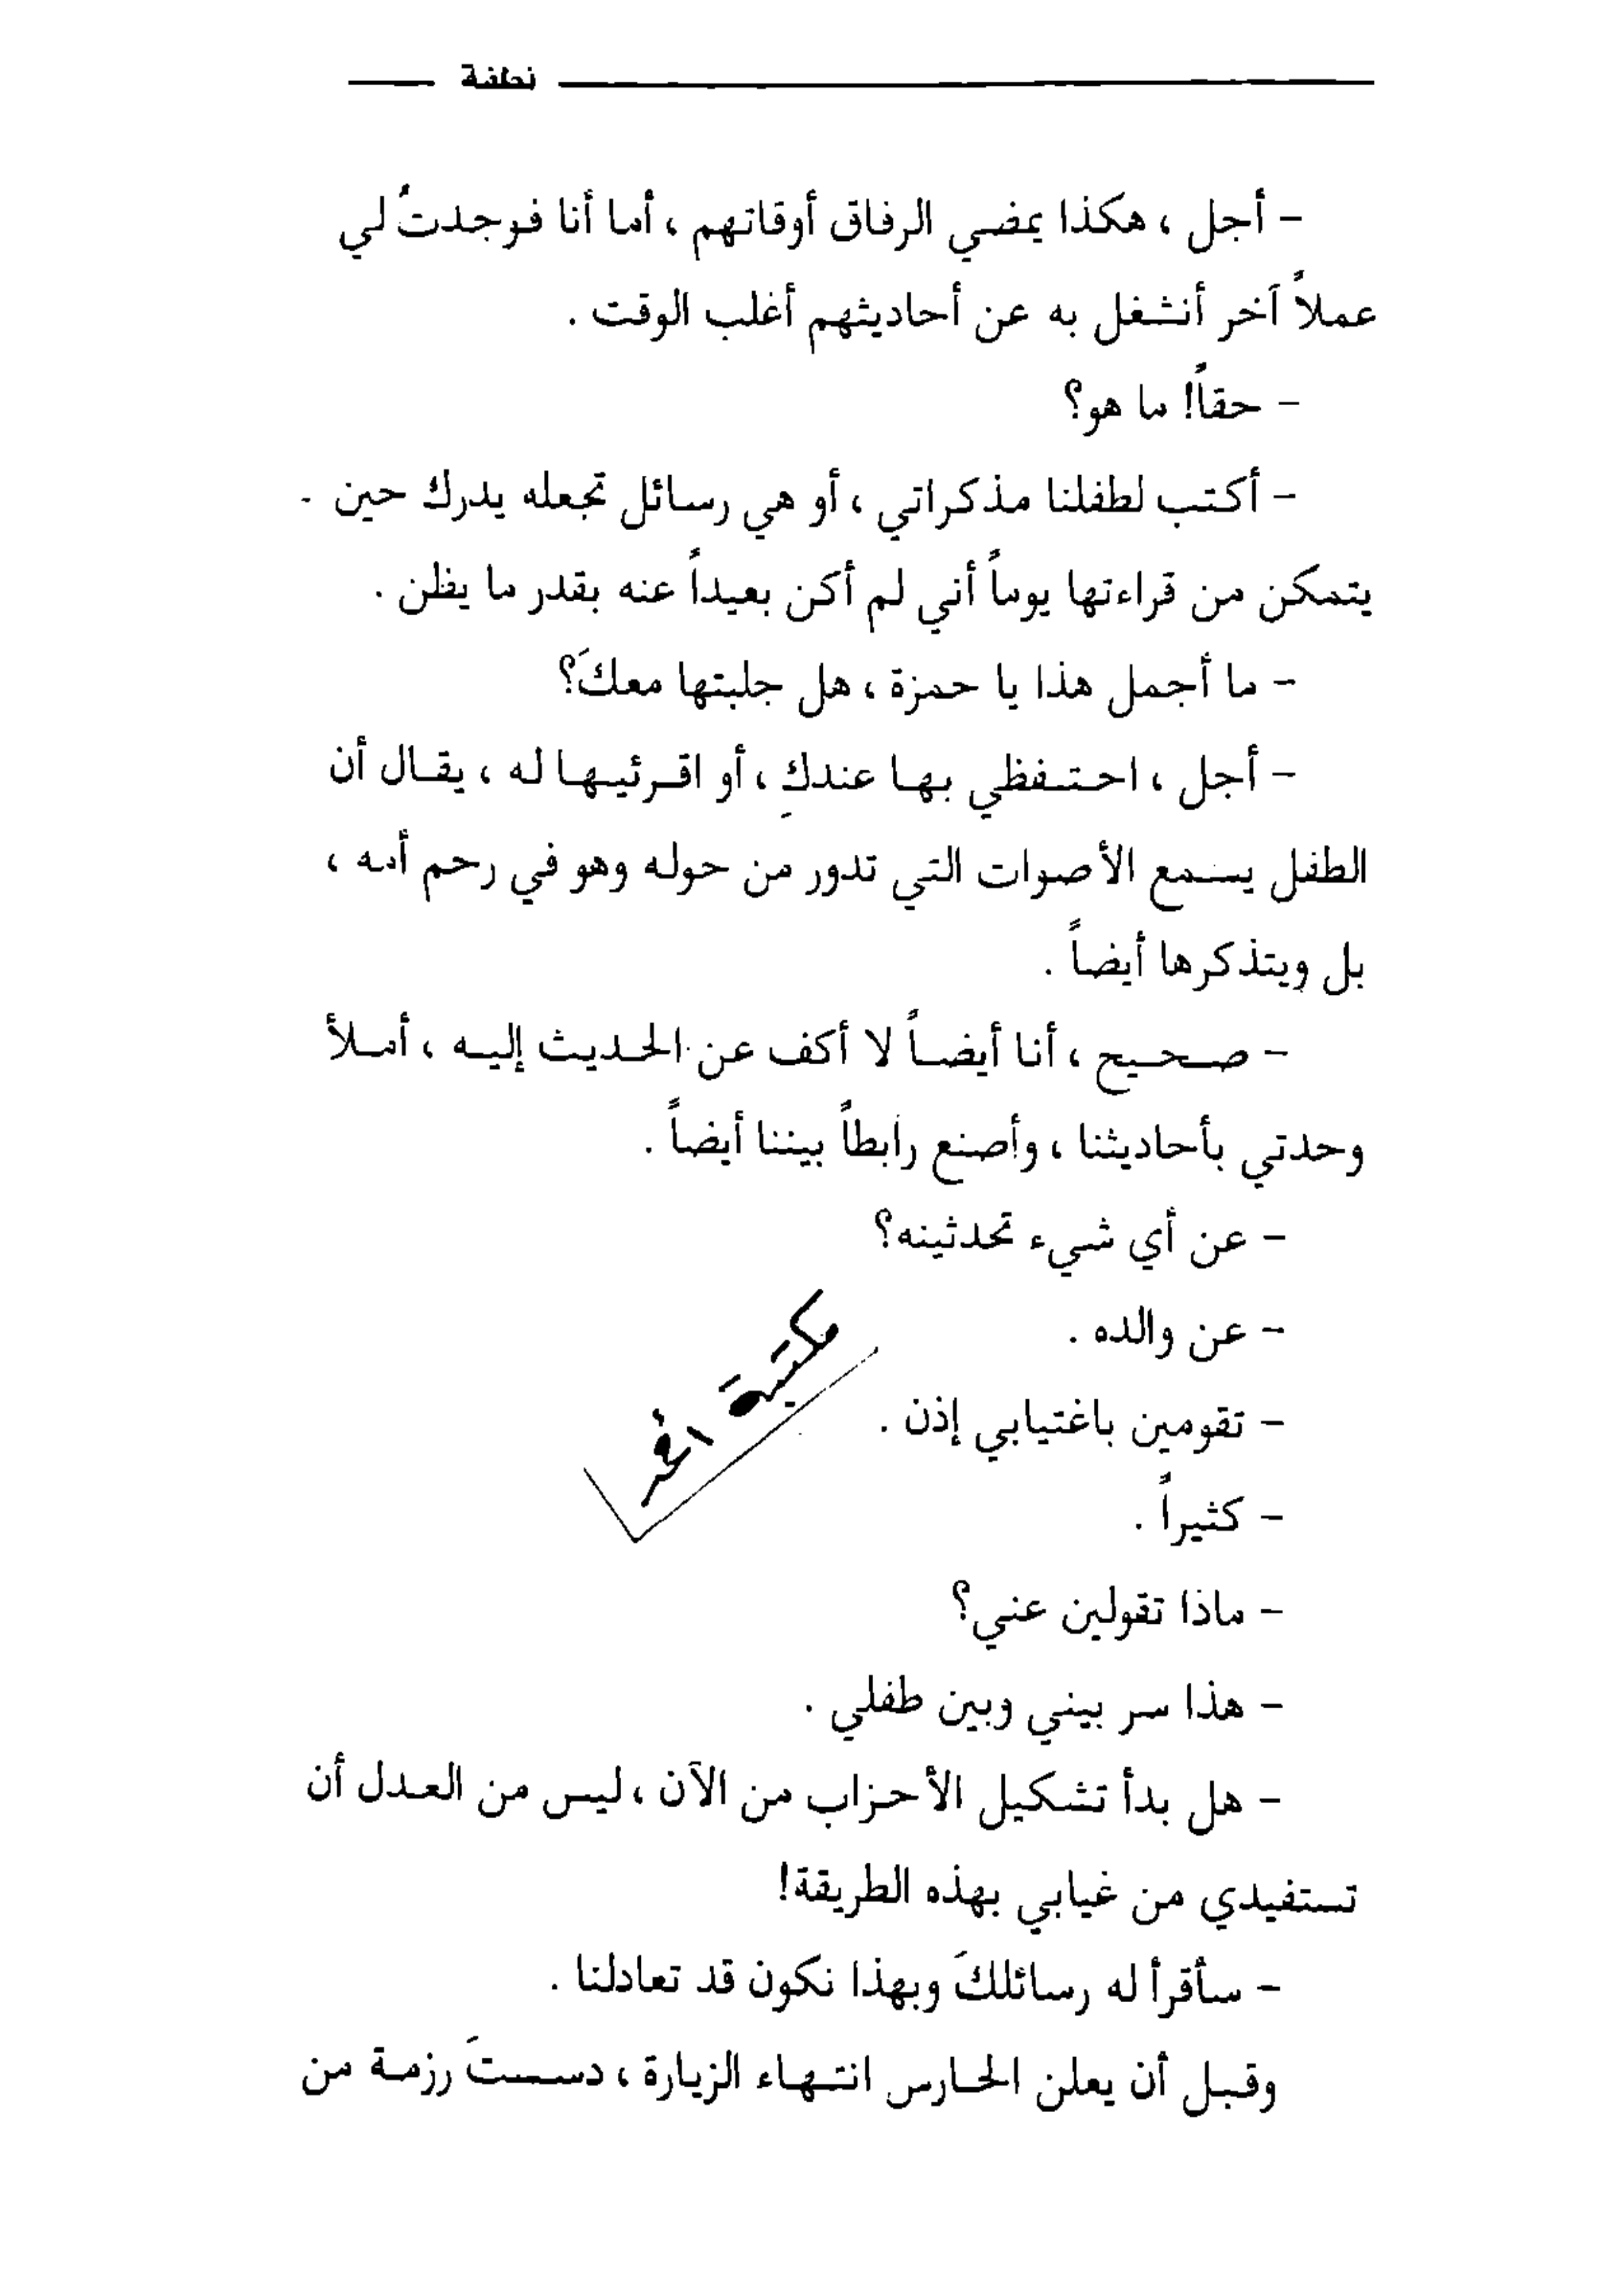 نطفة
– أجل ، هكذا يمضي الرفاق أوقاتهم ، أما أنا فوجدتُ لي
عملاً آخر أنشغل به عن أحاديثهم أغلب الوقت .
– حقاً! ما هو؟
– أكتب لطفلنا مذكراتي ، أو هي رسائل تجعله يدرك حين
يتمكن من قراءتها يوماً أني لم أكن بعيداً عنه بقدر ما يظن .
– ما أجمل هذا يا حمزة ، هل جلبتها معكَ؟
– أجل ، احتفظي بها عندكِ ، أو اقرئيها له ، يقال أن
الطفل يسمع الأصوات التي تدور من حوله وهو في رحم أمه ،
بل ويتذكرها أيضاً .
– صحيح ، أنا أيضاً لا أكف عن الحديث إليه ، أملأ
وحدتي بأحاديثنا ، وأصنع رابطاً بيننا أيضاً .
– عن أي شيء تحدثينه؟
– عن والده .
– تقومين باغتيابي إذن .
– كثيراً .
– ماذا تقولين عني؟
– هذا سر بيني وبين طفلي .
– هل بدأ تشكيل الأحزاب من الآن ، ليس من العدل أن
تستفيدي من غيابي بهذه الطريقة!
– سأقرأ له رسائلكَ وبهذا نكون قد تعادلنا .
وقبل أن يعلن الحارس انتهاء الزيارة ، دسستَ رزمة من
مكتبة